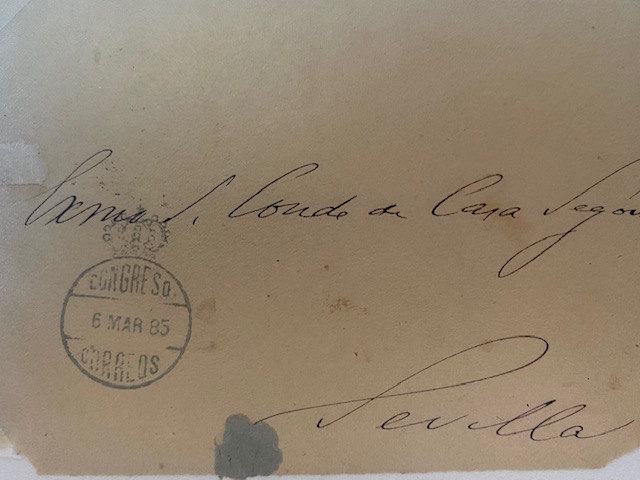 Exmo S. Conde de Casa Segov
CONGRESO
6 MAR 85
CORREOS
Sevilla